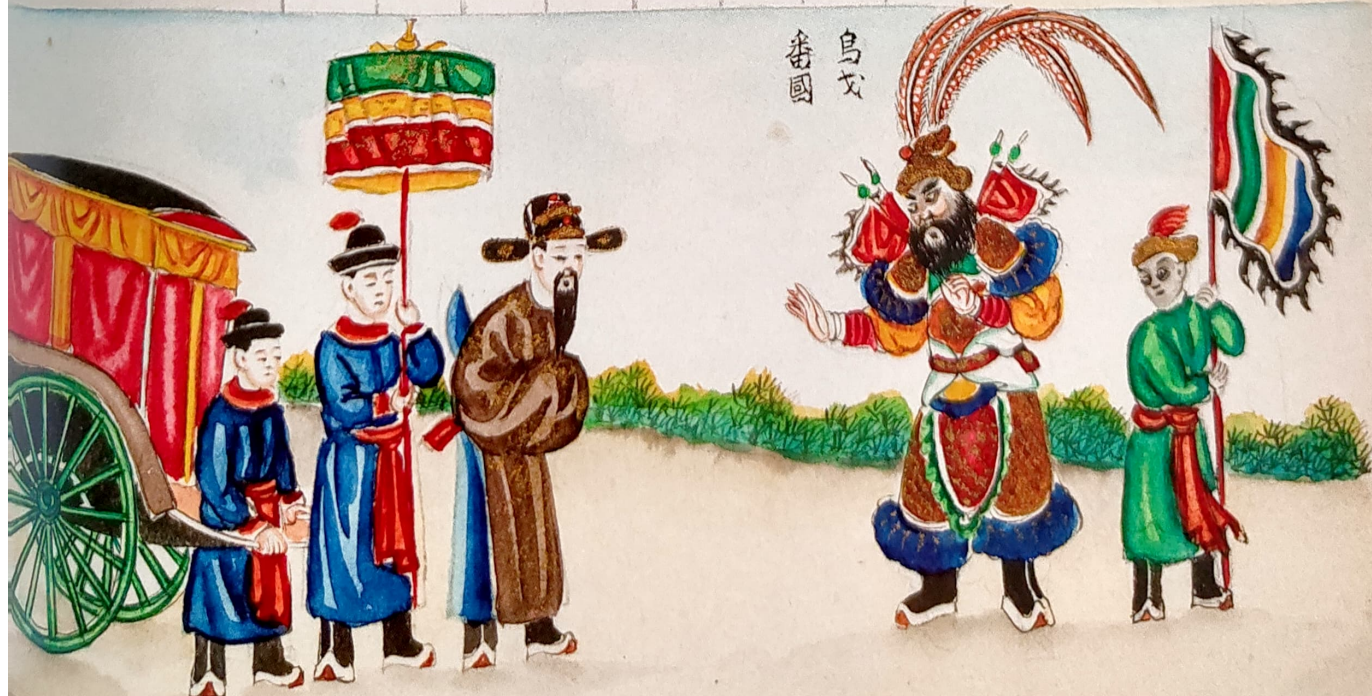 烏戈
番國